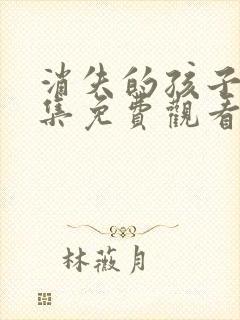 消失的孩子
集免費觀看
林薇月